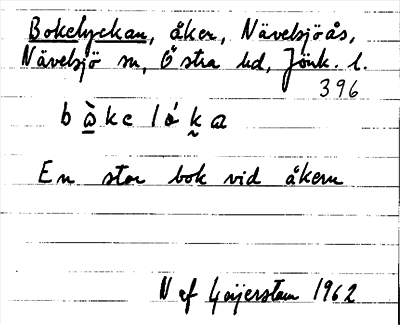 Bokelyckan, åker, Nävelsjöås,
Nävelsjö sn, Östra hd, Jönk. l.
396
b à k e l ó k a
En stor bok vid åkern
N af Geijerstam 1962